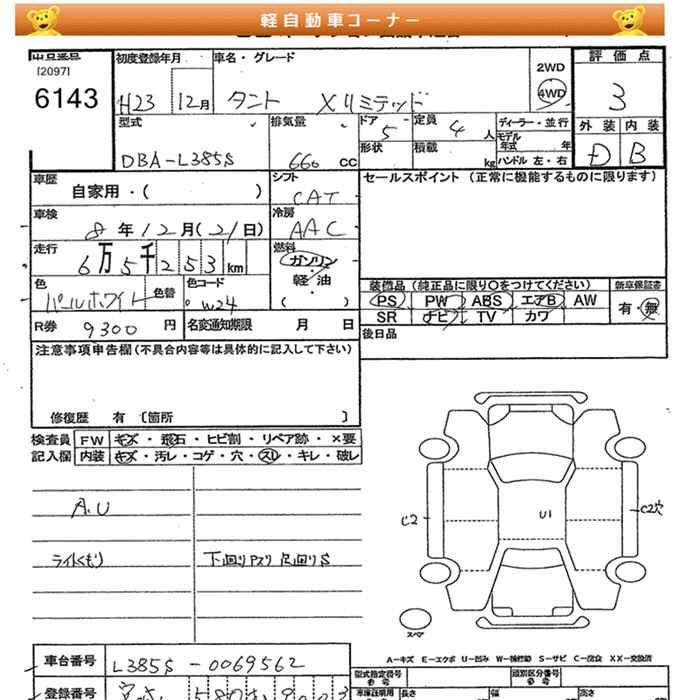 軽自動車コーナー
出品番号
[2097]
6143
初度登録年月
H23 12月
車名・グレード
タント Xリミテッド
2WD
4WD
評価点
3
外装 内装
D B
型式
DBA-L385S
排気量
660 CC
ドア
5
定員
4 人
形状
積載
kg
ディーラー・並行
モデル年式 年
ハンドル 左・右
車歴
自家用・( )
シフト
CAT
セールスポイント (正常に機能するものに限ります)
車検
8年12月(21日)
冷房
AAC
走行
6万5千253km
燃料
ガソリン
・
軽油
( )
色
パールホワイト
色替
色コード
W24
装備品 (純正品に限り○をつけてください)
新車保証書
PS PW ABS エアB AW
SR ナビ TV カワ
有・無
R券
9300 円
名変通知期限 月 日
後日品
注意事項申告欄(不具合内容等は具体的に記入して下さい)
修復歴 有 〔箇所 〕
検査員
記入欄
FW キズ・飛石・ヒビ割・リペア跡・×要
内装 キズ・汚レ・コゲ・穴・スレ・キレ・破レ
A.U
ライトくもり
下回りアスリ 足回りS
U1
C2穴
スペア
A−キズ E−エクボ U−凹み W−補修跡 S−サビ C−腐食 XX−交換済
車台番号
L385S-0069562
登録番号
型式指定番号
類別区分番号
長さ
幅
高さ